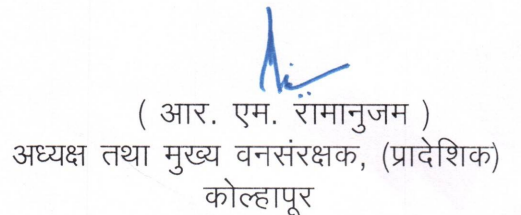 ( आर. एम. रामानुजम )
अध्यक्ष तथा मुख्य वनसंरक्षक, (प्रादेशिक)
कोल्हापूर